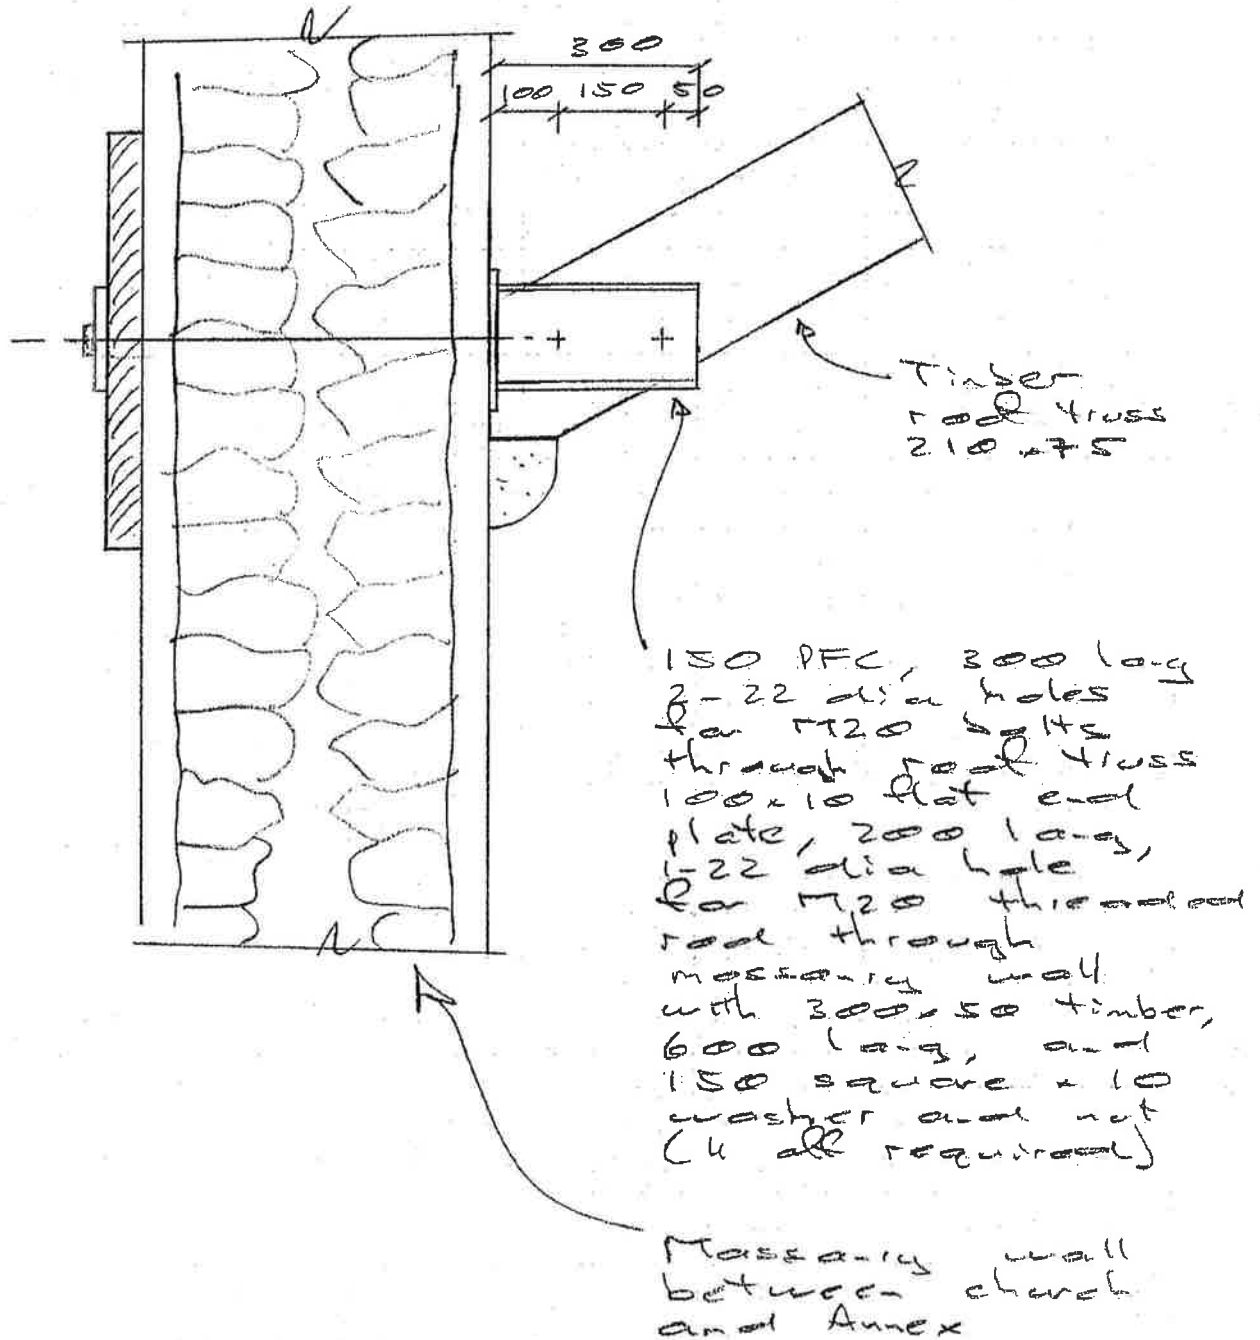 300
100 150 50
Timber
roof truss
210 x 75
150 PFC, 300 long
2-22 dia holes
for M20 bolts
through roof truss
100x10 flat end
plate, 200 long,
1-22 dia hole
for M20 threaded
rod through
massonry wall
with 300x50 timber,
600 long, and
150 square x 10
washer and nut
(4 off required)
Massonry wall
between church
and Annex